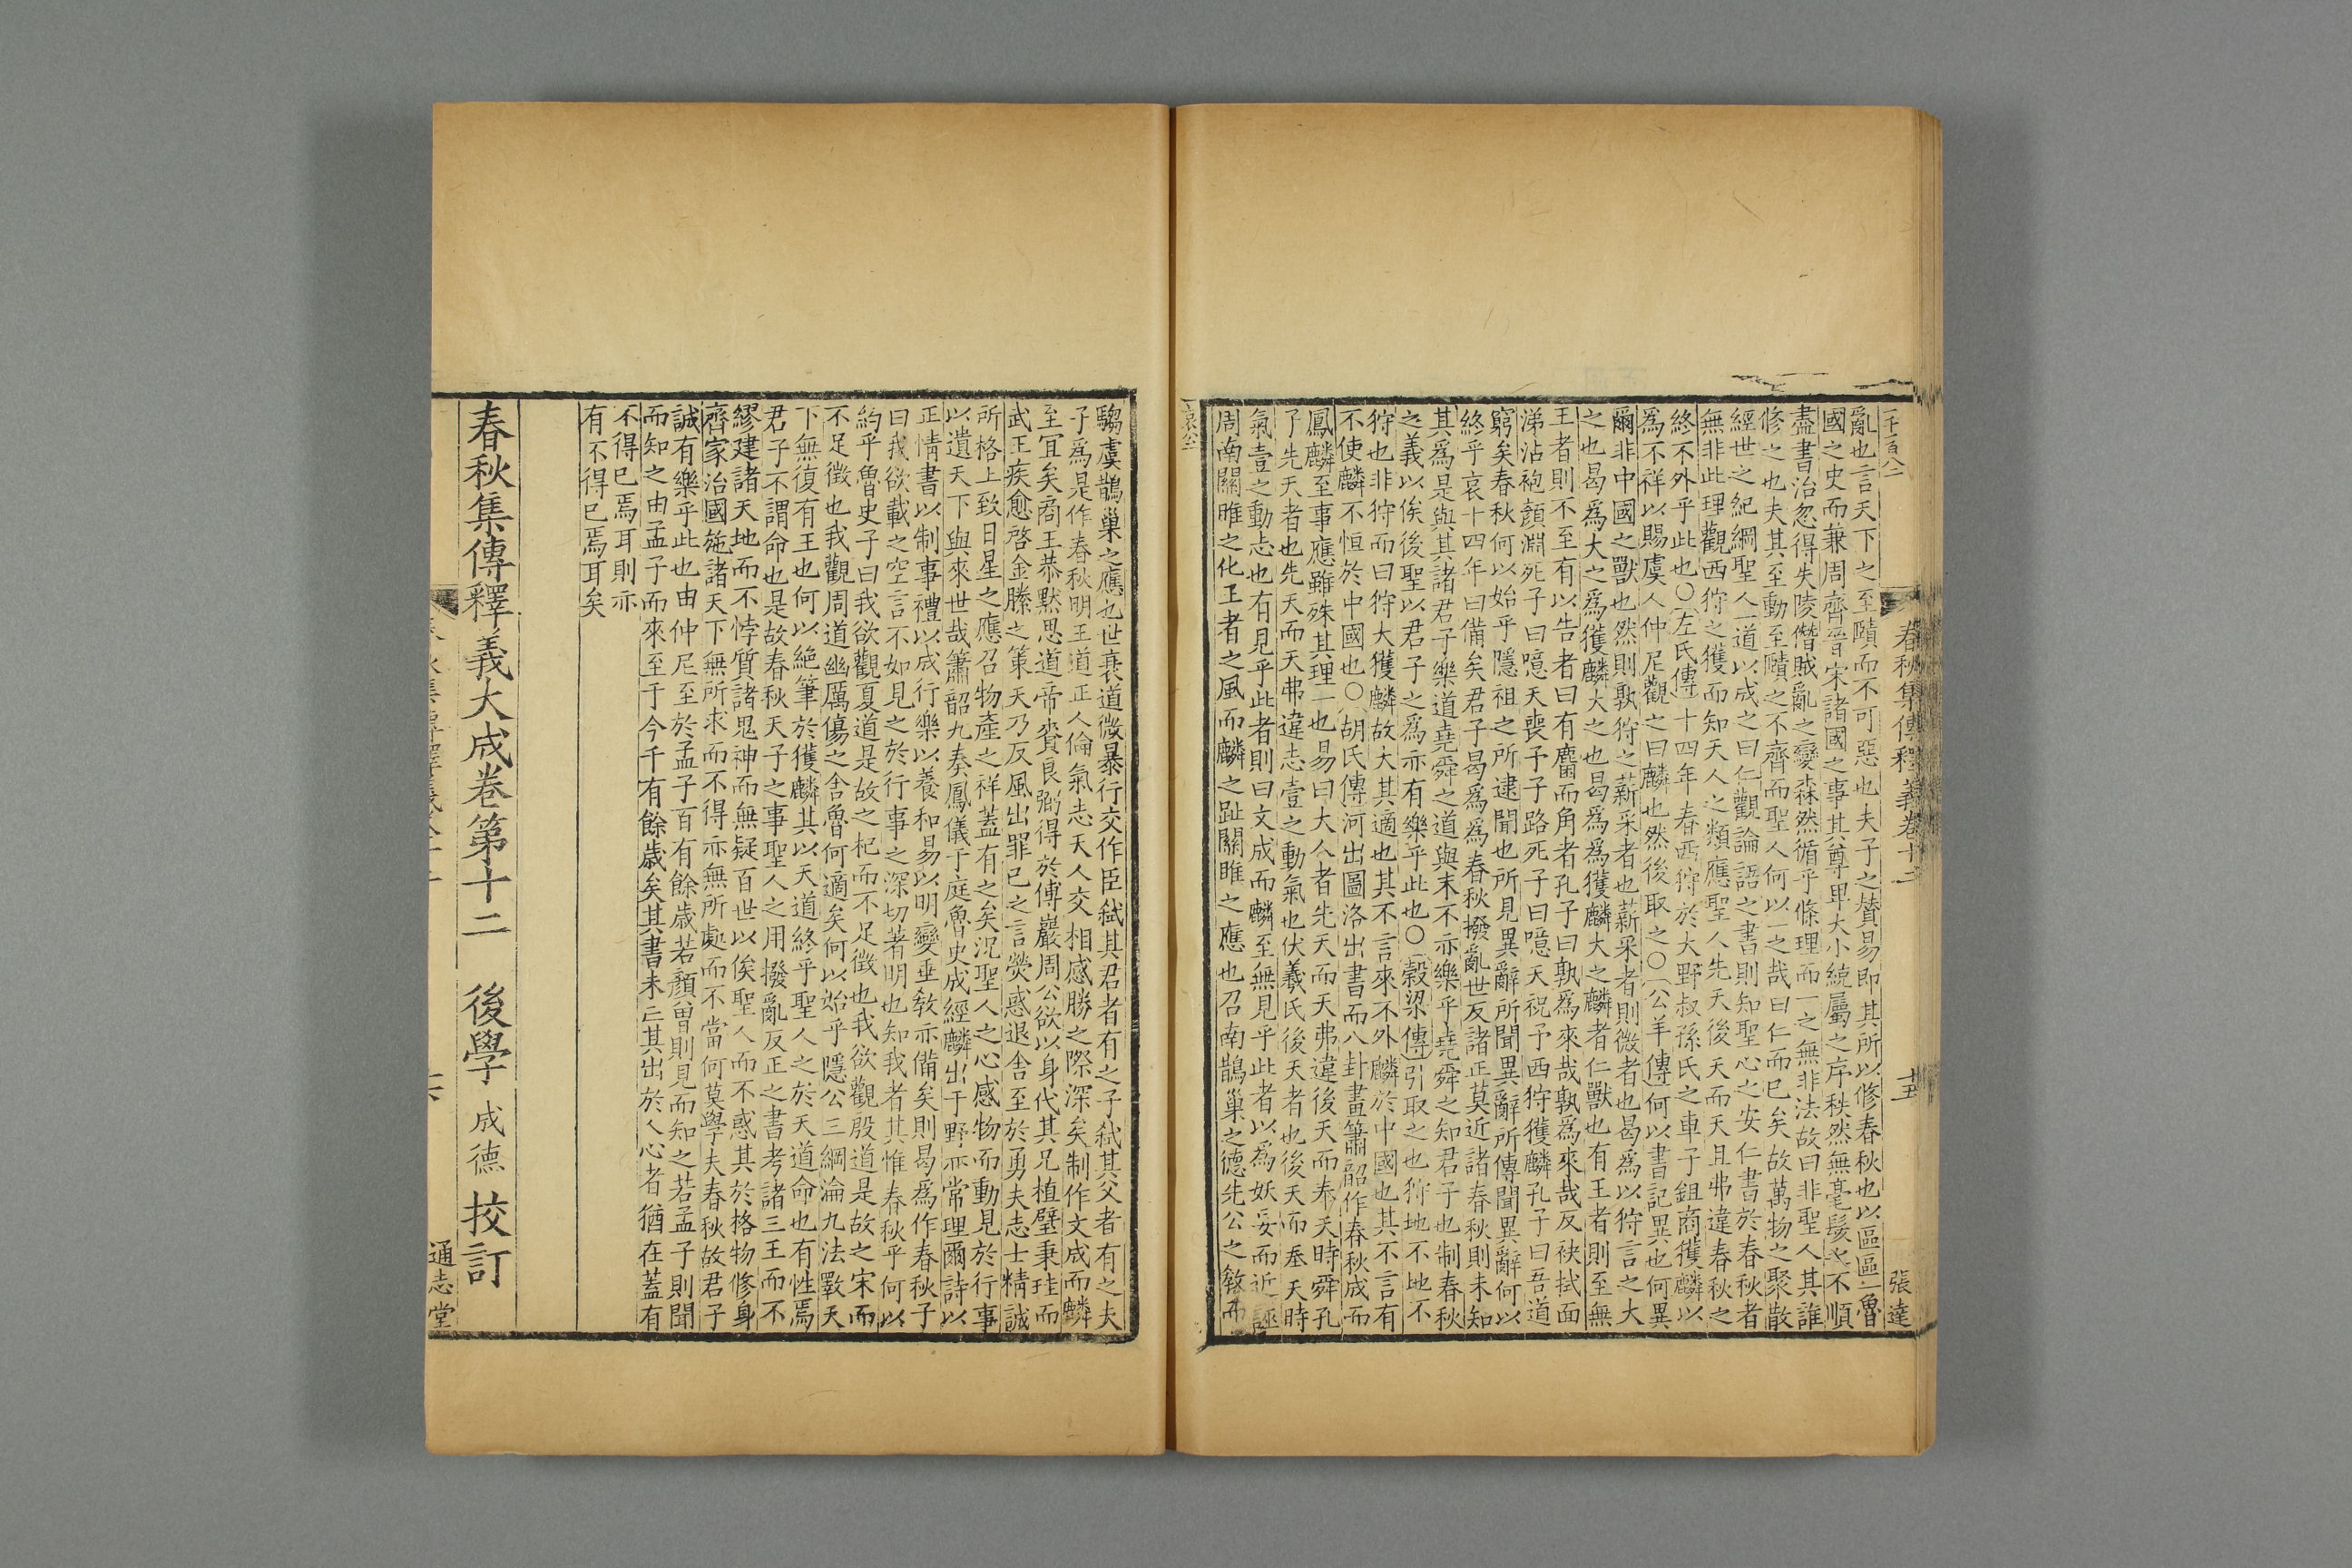 春秋集傳釋義卷十二
十五
張達
亂也言天下之至賾而不可惡也夫子之贊易即其所以修春秋也以區區一魯
國之史而兼周齊晉宋諸國之事其尊卑大小統屬之序秩然無毫髮之不順
盡書治忽得失陵僭賊亂之變森然循乎條理而一之無非法故曰非聖人其誰
修之也夫其至動至賾之不齊而聖人何以一之哉曰仁而已矣故萬物之聚散
經世之紀綱聖人一道以成之曰仁觀論語之書則知聖心之安仁書於春秋者
無非此理觀西狩之獲而知天人之類應聖人先天後天而天且弗違春秋之
終不外乎此也○左氏傳十四年春西狩於大野叔孫氏之車子鉏商獲麟以
爲不祥以賜虞人仲尼觀之曰麟也然後取之○公羊傳何以書記異也何異
爾非中國之獸也然則孰狩之薪采者也薪采者則微者也曷爲以狩言之大
之也曷爲大之爲獲麟大之也曷爲爲獲麟大之麟者仁獸也有王者則至無
王者則不至有以告者曰有麕而角者孔子曰孰爲來哉孰爲來哉反袂拭面
涕沾袍顏淵死子曰噫天喪予子路死子曰噫天祝予西狩獲麟孔子曰吾道
窮矣春秋何以始乎隱祖之所逮聞也所見異辭所聞異辭所傳聞異辭何以
終乎哀十四年曰備矣君子曷爲爲春秋撥亂世反諸正莫近諸春秋則未知
其爲是與其諸君子樂道堯舜之道與末不亦樂乎堯舜之知君子也制春秋
之義以俟後聖以君子之爲亦有樂乎此也○穀梁傳引取之也狩地不地不
狩也非狩而曰狩大獲麟故大其適也其不言來不外麟於中國也其不言有
不使麟不恒於中國也○胡氏傳河出圖洛出書而八卦畫簫韶作春秋成而
鳳麟至事應雖殊其理一也易曰大人者先天而天弗違後天而奉天時舜孔
子先天者也先天而天弗違志壹之動氣也伏羲氏後天者也後天而奉天時
氣壹之動志也有見乎此者則曰文成而麟至無見乎此者以爲妖妄而近誣
周南關雎之化王者之風而麟之趾關雎之應也召南鵲巢之德先公之敎而
騶虞鵲巢之應也世衰道微暴行交作臣弑其君者有之子弑其父者有之夫
子爲是作春秋明王道正人倫氣志天人交相感勝之際深矣制作文成而麟
至宜矣商王恭默思道帝賚良弼得於傅巖周公欲以身代其兄植璧秉珪而
武王疾愈啓金縢之策天乃反風出罪己之言熒惑退舍至於勇夫志士精誠
所格上致日星之應召物產之祥蓋有之矣況聖人之心感物而動見於行事
以遺天下與來世哉簫韶九奏鳳儀于庭魯史成經麟出于野亦常理爾詩以
正情書以制事禮以成行樂以養和易以明變垂敎亦備矣則曷爲作春秋子
曰我欲載之空言不如見之於行事之深切著明也知我者其惟春秋乎何以
約乎魯史子曰我欲觀夏道是故之杞而不足徵也我欲觀殷道是故之宋而
不足徵也我觀周道幽厲傷之舍魯何適矣何以始乎隱公三綱淪九法斁天
下無復有王也何以絕筆於獲麟其以天道終乎聖人之於天道命也有性焉
君子不謂命也是故春秋天子之事聖人之用撥亂反正之書考諸三王而不
繆建諸天地而不悖質諸鬼神而無疑百世以俟聖人而不惑其於格物修身
齊家治國施諸天下無所求而不得亦無所處而不當何莫學夫春秋故君子
誠有樂乎此也由仲尼至於孟子百有餘歲若顏曾則見而知之若孟子則聞
而知之由孟子而來至于今千有餘歲矣其書未亡其出於人心者猶在蓋有
不得已焉耳則亦
有不得已焉耳矣
春秋集傳釋義大成卷第十二　後學　成德　挍訂
通志堂